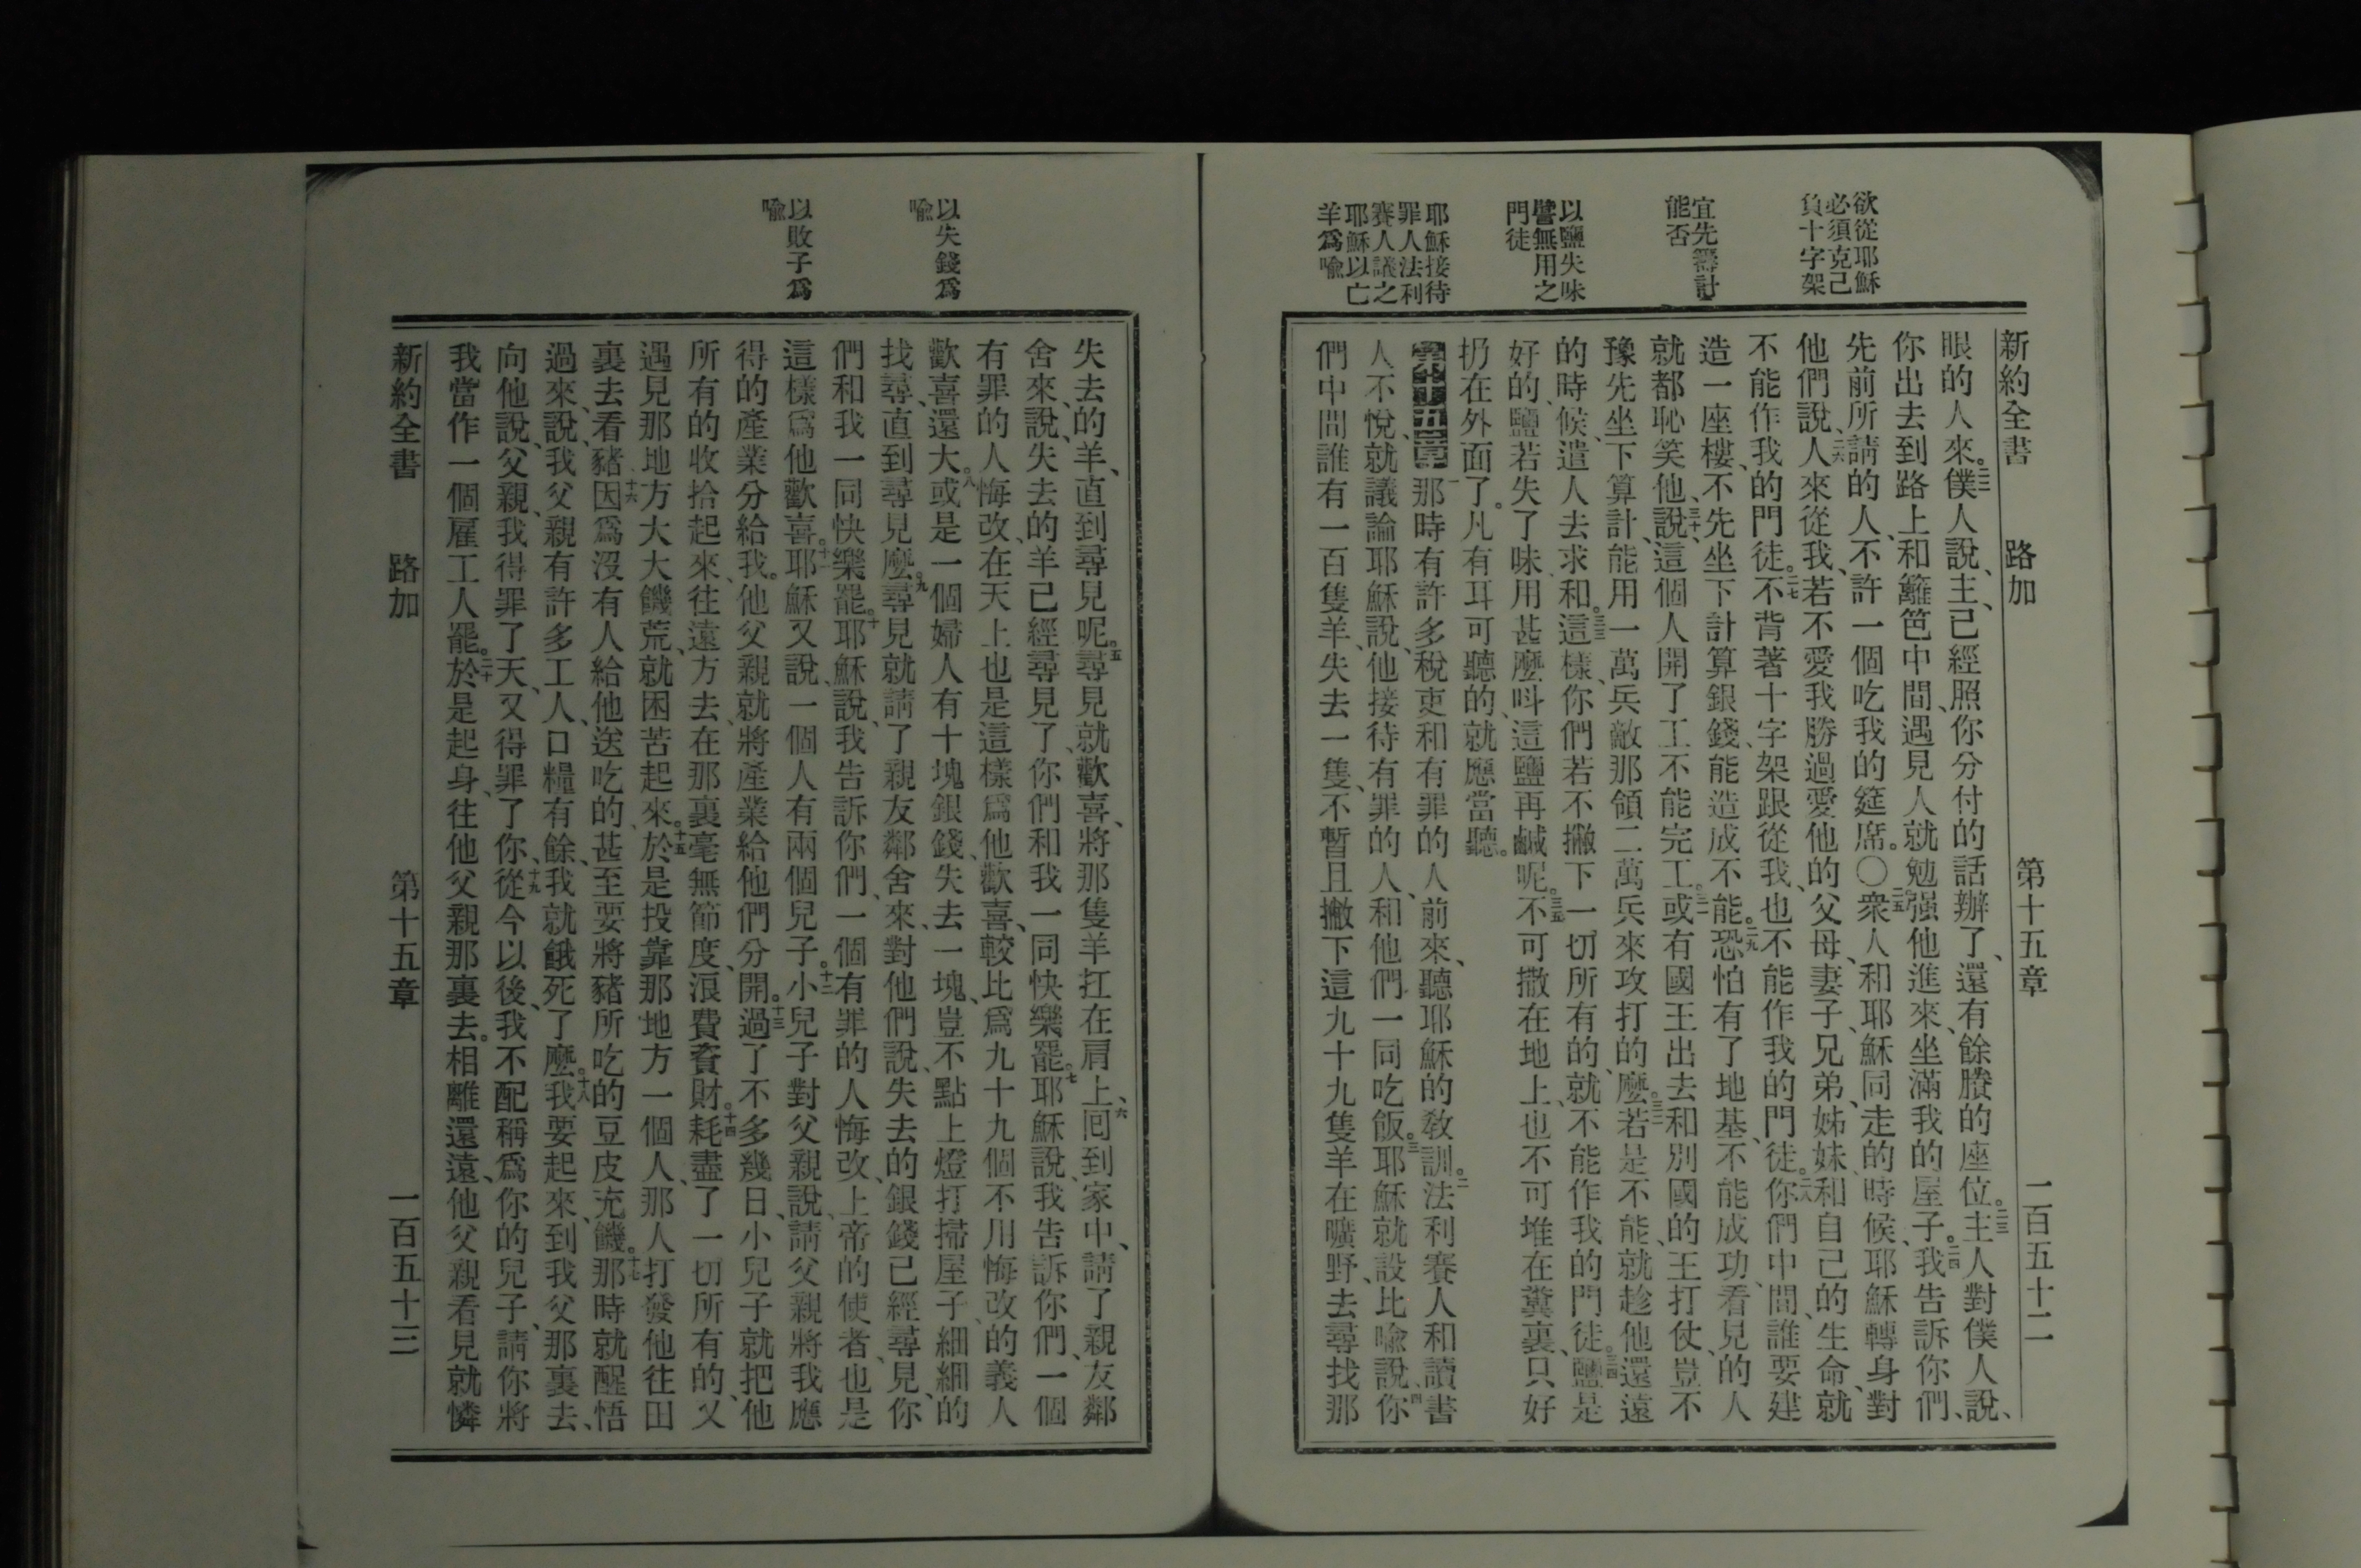 欲從耶穌
必須克己
負十字架
宜先籌計
能否
以鹽失味
譬無用之
門徒
耶穌接待
罪人法利
賽人議之
耶穌以亡
羊爲喻
新約全書　路加　第十五章　一百五十二
眼的人來。二二僕人說、主、已經照你分付的話辦了、還有餘賸的座位。二三主人對僕人說、
你出去到路上、和籬笆中間、遇見人就勉强他進來、坐滿我的屋子。二四我告訴你們、
先前所請的人、不許一個吃我的筵席。〇二五衆人和耶穌同走的時候、耶穌轉身對
他們說、二六人來從我、若不愛我勝過愛他的父母、妻子、兄弟、姊妹、和自己的生命、就
不能作我的門徒。二七不背著十字架跟從我、也不能作我的門徒。二八你們中間、誰要建
造一座樓、不先坐下計算銀錢、能造成不能。二九恐怕有了地基、不能成功、看見的人
就都恥笑他、三十說、這個人開了工不能完工。三一或有國王出去和別國的王打仗、豈不
豫先坐下算計、能用一萬兵敵那領二萬兵來攻打的麽。三二若是不能、就趁他還遠
的時候、遣人去求和。三三這樣、你們若不撇下一切所有的、就不能作我的門徒。三四鹽是
好的、鹽若失了味、用甚麽呌這鹽再鹹呢。三五不可撒在地上、也不可堆在糞裏、只好
扔在外面了。凡有耳可聽的、就應當聽。
第十五章一那時有許多稅吏和有罪的人前來、聽耶穌的敎訓。二法利賽人和讀書
人不悅、就議論耶穌說、他接待有罪的人、和他們一同吃飯。三耶穌就設比喻說、四你
們中間誰有一百隻羊、失去一隻、不暫且撇下這九十九隻羊在曠野、去尋找那
以失錢爲
喻
以敗子爲
喻
失去的羊、直到尋見呢。五尋見就歡喜、將那隻羊扛在肩上、六囘到家中、請了親友鄰
舍來、說、失去的羊已經尋見了、你們和我一同快樂罷。七耶穌說、我告訴你們、一個
有罪的人悔改、在天上也是這樣爲他歡喜、較比爲九十九個不用悔改的義人
歡喜還大。八或是一個婦人有十塊銀錢、失去一塊、豈不點上燈打掃屋子、細細的
找尋、直到尋見麽。九尋見就請了親友鄰舍來、對他們說、失去的銀錢已經尋見、你
們和我一同快樂罷。十耶穌說、我告訴你們、一個有罪的人悔改、上帝的使者、也是
這樣爲他歡喜。十一耶穌又說、一個人有兩個兒子。十二小兒子對父親說、請父親將我應
得的產業分給我。他父親就將產業給他們分開。十三過了不多幾日、小兒子就把他
所有的收拾起來、往遠方去、在那裏毫無節度、浪費資財。十四耗盡了一切所有的、又
遇見那地方大大饑荒、就困苦起來。十五於是投靠那地方一個人、那人打發他往田
裏去看豬、十六因爲沒有人給他送吃的、甚至要將豬所吃的豆皮充饑。十七那時就醒悟
過來、說、我父親有許多工人、口糧有餘、我就餓死了麽。十八我要起來、到我父那裏去、
向他說、父親、我得罪了天、又得罪了你、十九從今以後、我不配稱爲你的兒子、請你將
我當作一個雇工人罷。二十於是起身、往他父親那裏去。相離還遠、他父親看見就憐
新約全書　路加　第十五章　一百五十三